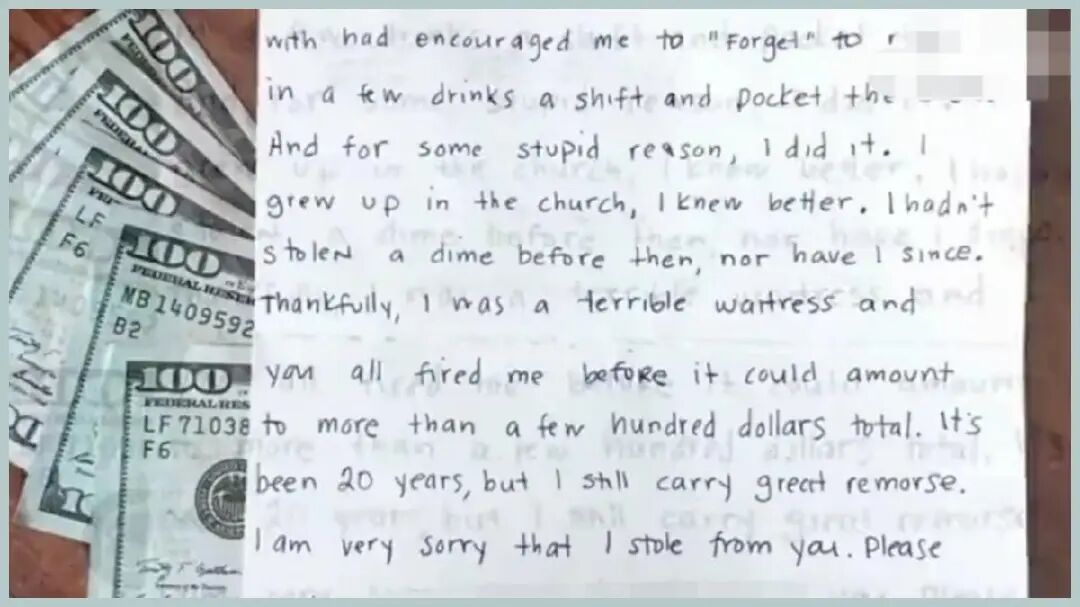 with had encouraged me to "Forget" to
in a few drinks a shift and pocket
And for some stupid reason, I did it. I
grew up in the church, I knew better. I hadn't
stolen a dime before then, nor have I since.
Thankfully, I was a terrible waitress and
you all fired me before it could amount
to more than a few hundred dollars total. It's
been 20 years, but I still carry great remorse.
I am very sorry that I stole from you. Please
100
100
100
LF
F6
100
FEDERAL RESER
MB1409592
B2
100
FEDERAL RES
LF 71038
F6